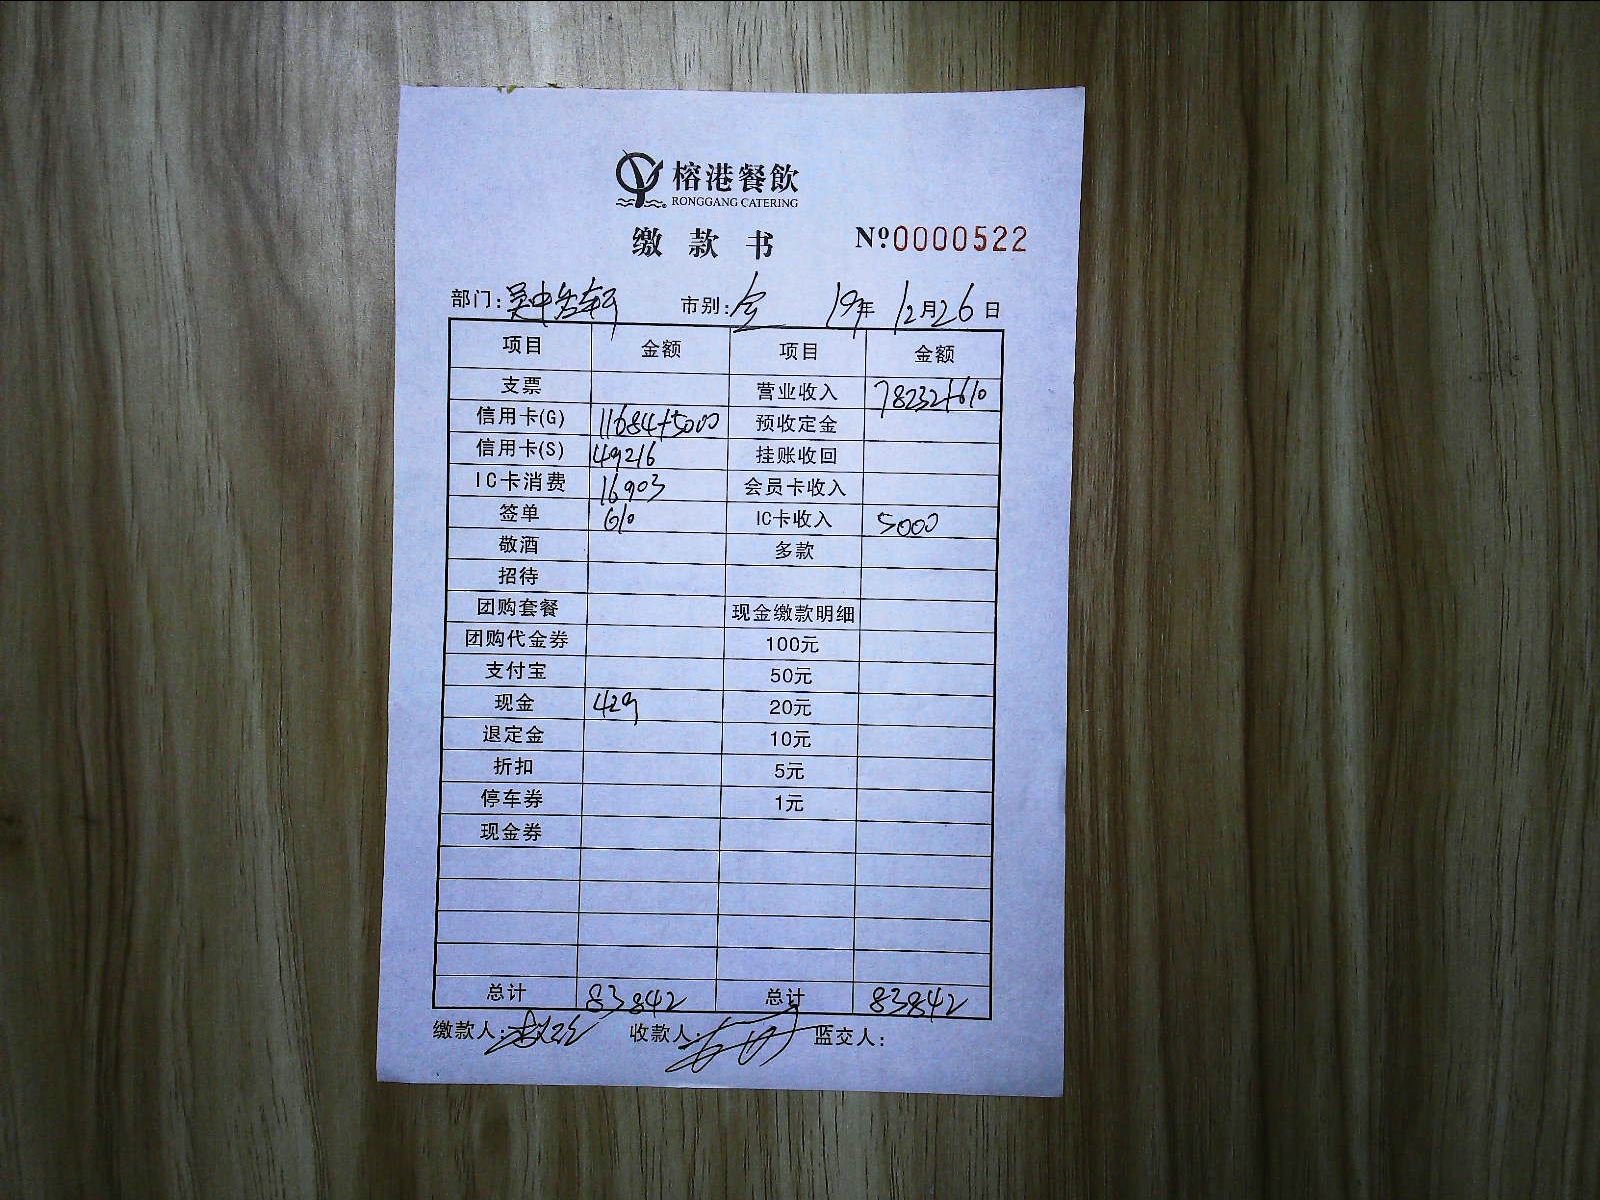 榕港餐飲
RONGGANG CATERING
缴款书 Nº0000522
部门: 市别:全 19年 12月26日
项目 金额 项目 金额
支票 营业收入 78232+610
信用卡(G) 11684+5000 预收定金
信用卡(S) 49216 挂账收回
IC卡消费 16903 会员卡收入
签单 610 IC卡收入 5000
敬酒 多款
招待
团购套餐 现金缴款明细
团购代金券 100元
支付宝 50元
现金 429 20元
退定金 10元
折扣 5元
停车券 1元
现金券
总计 83842 总计 83842
缴款人: 收款人: 监交人: